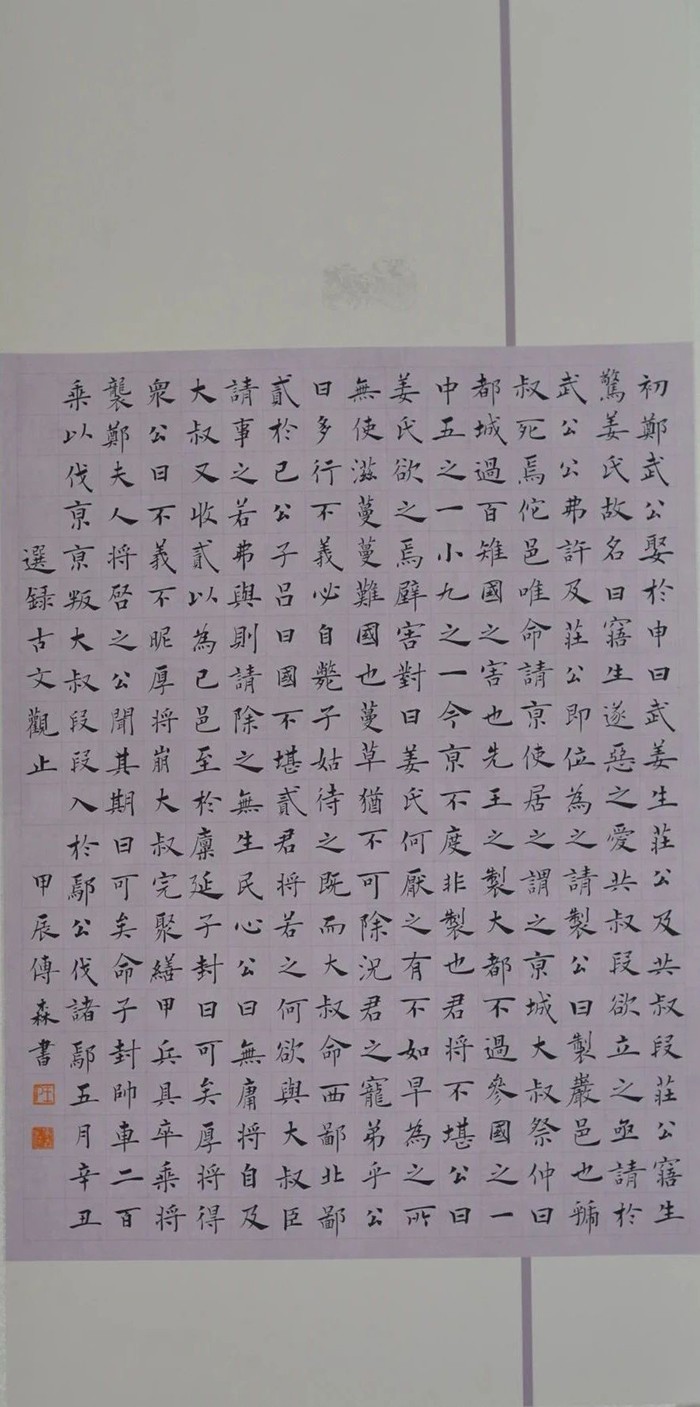 初鄭武公娶於申曰武姜生莊公及共叔段莊公寤生
驚姜氏故名曰寤生遂惡之愛共叔段欲立之亟請於
武公公弗許及莊公即位為之請製公曰製嚴邑也虢
叔死焉佗邑唯命請京使居之謂之京城大叔祭仲曰
都城過百雉國之害也先王之製大都不過參國之一
中五之一小九之一今京不度非製也君將不堪公曰
姜氏欲之焉辟害對曰姜氏何厭之有不如早為之所
無使滋蔓蔓難國也蔓草猶不可除況君之寵弟乎公
曰多行不義必自斃子姑待之既而大叔命西鄙北鄙
貳於己公子呂曰國不堪貳君將若之何欲與大叔臣
請事之若弗與則請除之無生民心公曰無庸將自及
大叔又收貳以為己邑至於廩延子封曰可矣厚將得
眾公曰不義不昵厚將崩大叔完聚繕甲兵具卒乘將
襲鄭夫人將啓之公聞其期曰可矣命子封帥車二百
乘以伐京京叛大叔段段入於鄢公伐諸鄢五月辛丑
選録古文觀止 甲辰傳森書